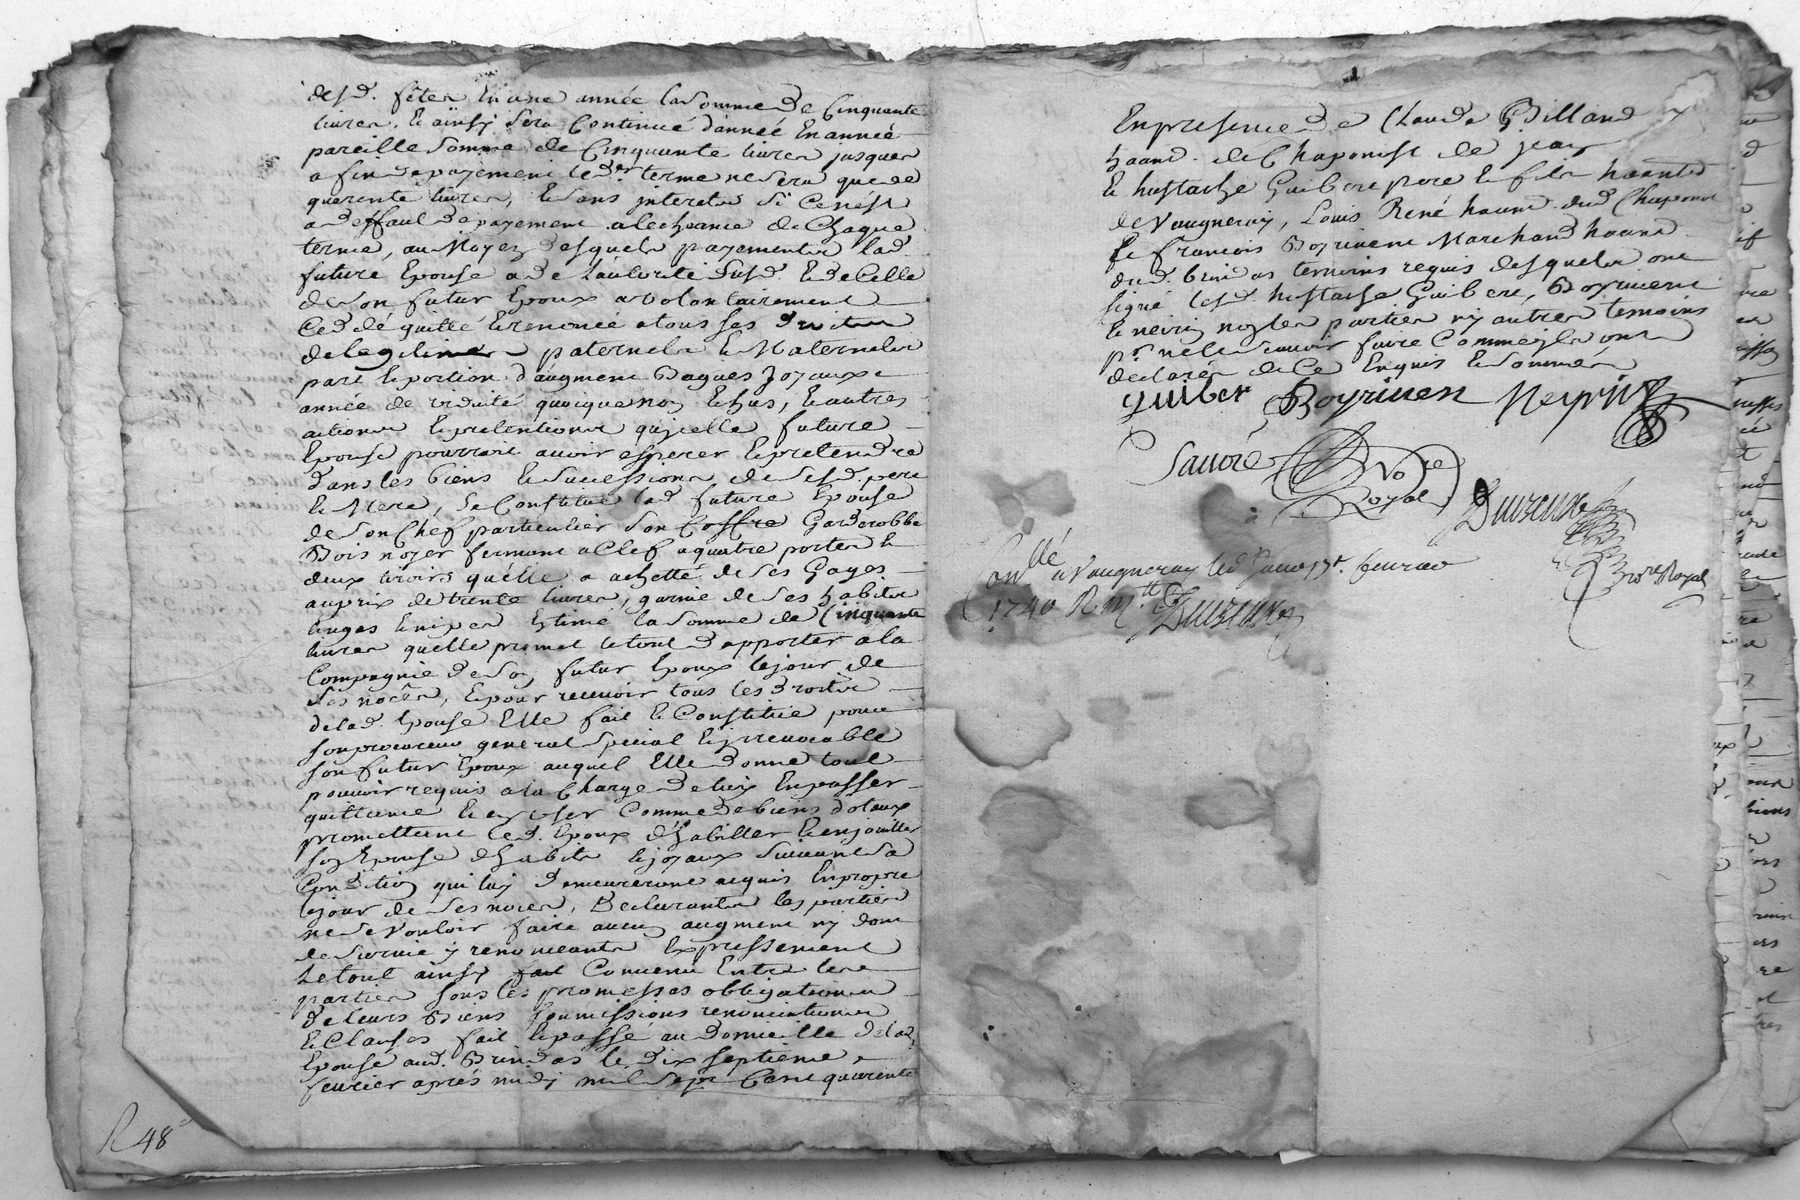 desd. fêtes En une année la Somme de Cinquante
livres, & ainsy Sera Continué d'année En année
pareille Somme de Cinquante livres jusques
a fin de payement le der. terme ne Sera que de
quarente livres, & Sans interets Si Ce n'est
a deffaut de payement a lecheance de Chaque
terme, au Moyen desquels payements lad.
future Epouse a de l'autorité Susd. & de Celle
de Son futur Epoux a volontairement
Ceddé quitté & renoncé a tous ses droits
de legitimes paternels & Maternels
part & portion d'augment Bagues Joyaux
année de viduité quoique non Echus, & autres
actions & pretentions qu'jcelle future
Epouse pourrait avoir esperer & pretendre
dans les biens & Successions de Sesd. pere
& Mere, Se Constitue lad. future Epouse
de Son Chef particulier Son Coffre Garderobbe
Bois noyer fermant a Clef a quatre portes &
deux tiroirs qu'elle a achetté de Ses Gages
au prix de trente livres, garnie de Ses habits
linges & nipes Estimé la Somme de Cinquante
livres quelle promet le tout d'apporter a la
Compagnie de Son futur Epoux le jour de
Ses noces, & pour recevoir tous les Droits
de lad. Epouse Elle fait & Constitue pour
Son procureur general Special & jrrevocable
Son futur Epoux auquel Elle donne tout
pouvoir requis a la Charge de luy En passer
quittance & Comme de biens dotaux
promettant led. Epoux d'habiller & enjouailler
Son Epouse d'habits & joyaux Suivant Sa
Condition qui luy demeureront acquis En propre
le jour de Ses noces, Declarants les parties
ne Se Vouloir faire aucun augment ny don
de Survie y renonceants Expressement
Le tout ainsy fait Convenu Entre les
parties Sous les promesses obligations
de leurs Biens Soumissions renonciations
& Clauses fait & passé au Domicille de lad.
Epouse aud. Brindas le Dix Septieme
fevrier aprés midy mil Sept Cent quarente
R 48
En presence de Claude Billand
haant. de Chaponost de jean
& hustache Guibert pere & fils haants
de Vaugneray, Louis René haant. dud. Chaponost
& francois Boyrivent Marchand haant.
dud. brindas temoins requis desquels ont
Signé lesd. hustache Guibert, Boyrivent
& neirin non les parties ny autres temoins
pr. ne le Scavoir faire Comme ils ont
declarés de Ce Enquis & Sommés
guiber Boyriven Neyrin
Savoié
No.re
Royal
No.re Royal
Con.llé a Vaugneray led. Jour 17e. fevrier
1740 R.